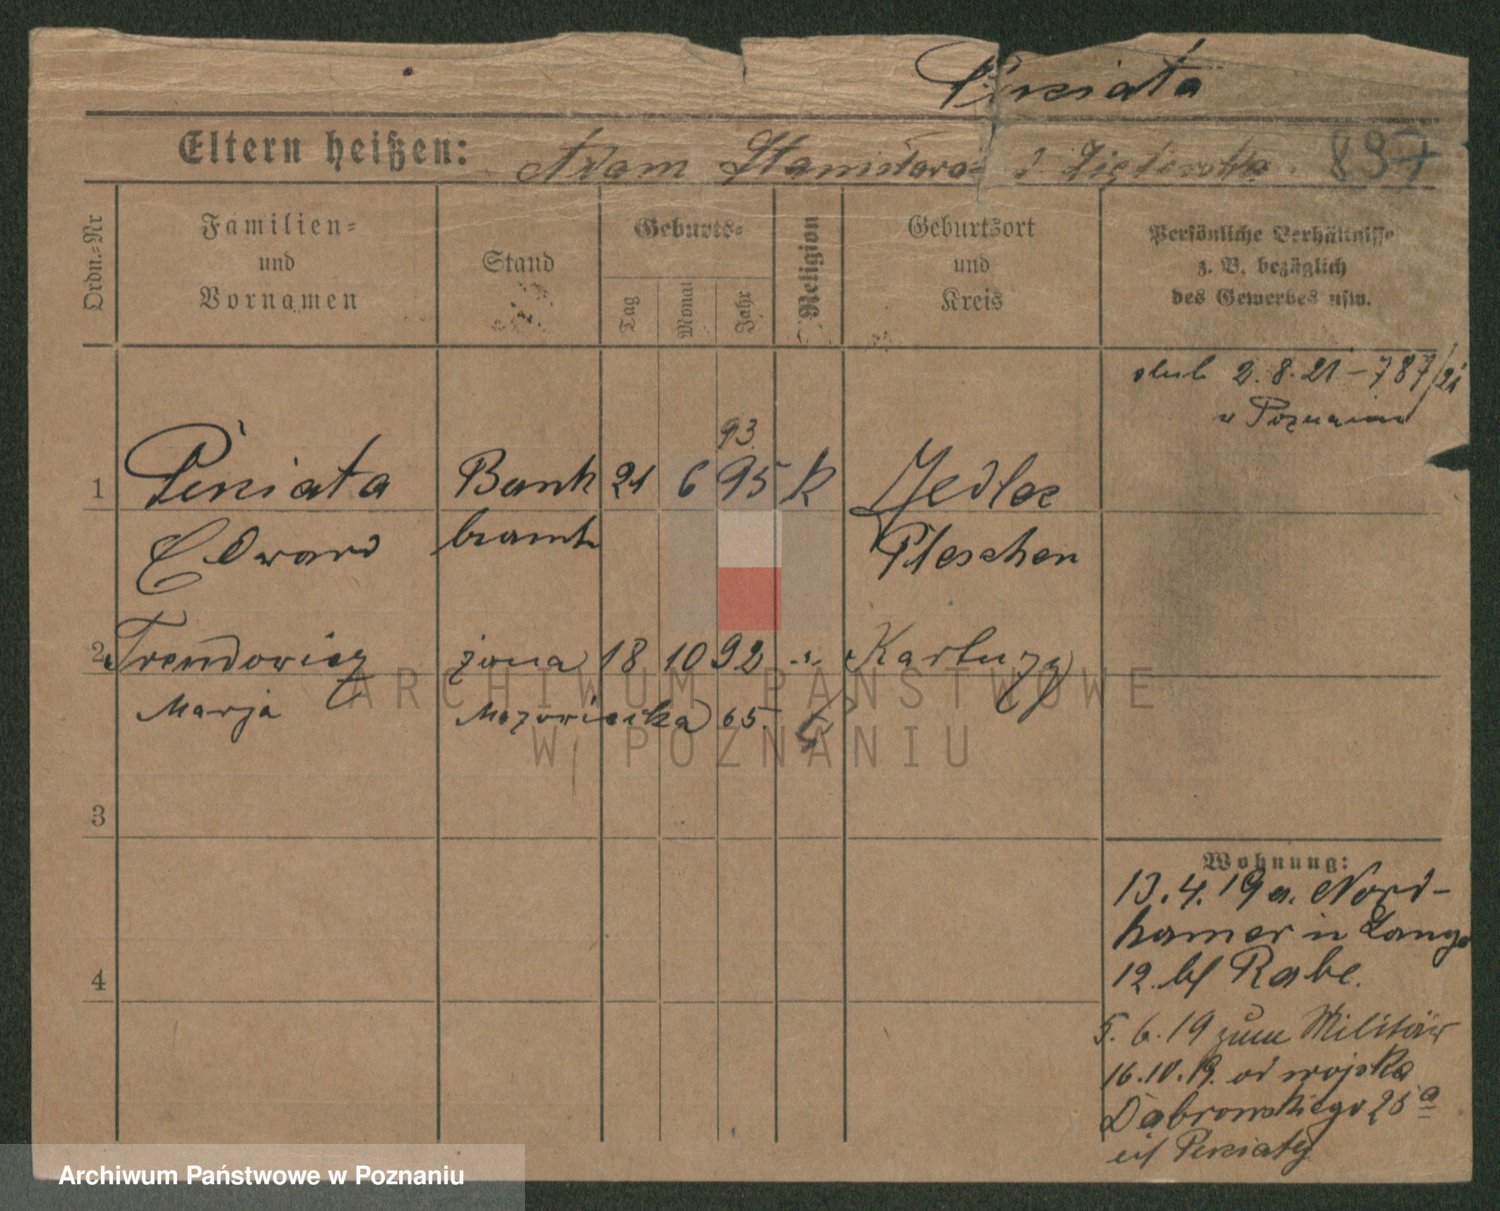 Pieziata
Eltern heißen: Adam Stanisława 837
Ordn.=Nr
Familien=
und
Vornamen
Stand
Geburts=
Tag
Monat
Jahr
Religion
Geburtsort
und
Kreis
Persönliche Verhältnisse
z. B. bezüglich
des Gewerbes usw.
ślub 2.8.21 – 787/21
w Poznaniu
93
1 Penziata Bank 21 6 95 K Jedlec
Edward beamt Pleschen
2 Trendowicz żona 18 10 92 Kartuzy
Marja Mazowiecka 65
3
4
Wohnung:
13.4.19 a. Nord-
hamer in Lange
12. bf Rabe.
5.6.19 zum Militär
16.10.19. od wojska
Dąbrowskiego 25a
ARCHIWUM PAŃSTWOWE
W POZNANIU
Archiwum Państwowe w Poznaniu